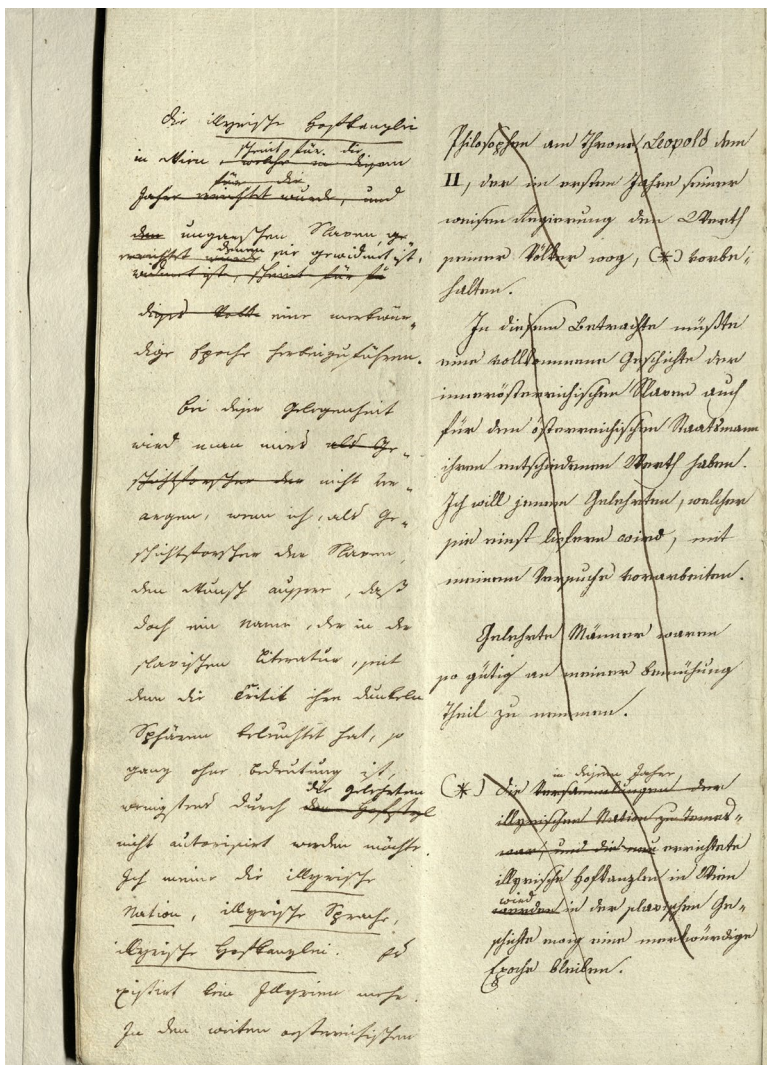 Die illyrische Hofkanzlei
in Wien scheint für die
welche in diesem
für die
Jahre errichtet wurde, und
den ungarischen Slaven ge
errichtet wurde denen sie gewidmet ist,
widmet ist, scheint für
dieses Volk eine merkwür-
dige Epoche herbeizuführen.
Bei dieser Gelegenheit
wird man mirs als Ge-
schichtsforscher der nicht ver-
argen, wenn ich, als Ge-
schichtsforscher der Slaven,
den Wunsch äussere, daß
doch ein Name, der in der
slavischen Literatur, seit
dem die Critik ihre dunkeln
Sphären beleuchtet hat, so
ganz ohne Bedeutung ist,
wenigstens durch die Gelehrten
den Hofstyl
nicht autorisirt werden möchte.
Ich meine die illyrische
Nation, illyrische Sprache,
illyrische Hofkanzlei. Es
existirt kein Illyrien mehr.
In den weiten oesterreichischen
Philosophen am Throne Leopold dem
II, der im ersten Jahre seiner
weisen Regierung den Werth
seiner Völker wog, (*) vorbe-
halten.
In diesem Betrachte müßte
eine vollkommene Geschichte der
innerösterreichischen Slaven auch
für den österreichischen Staatsmann
ihren entschiedenen Werth haben.
Ich will jenem Gelehrten, welcher
sie einst liefern wird, mit
meinem Versuche vorarbeiten.
Gelehrte Männer waren
so gütig an meiner Bemühung
Theil zu nemmen.
in diesem Jahre
(*) Die Versammlungen der
illyrischen Nation zu Temes-
war, und die neu errichtete
illyrische Hofkanzlei in Wien
wird
werden in der slavischen Ge-
schichte ewig eine merkwürdige
Epoche bleiben.